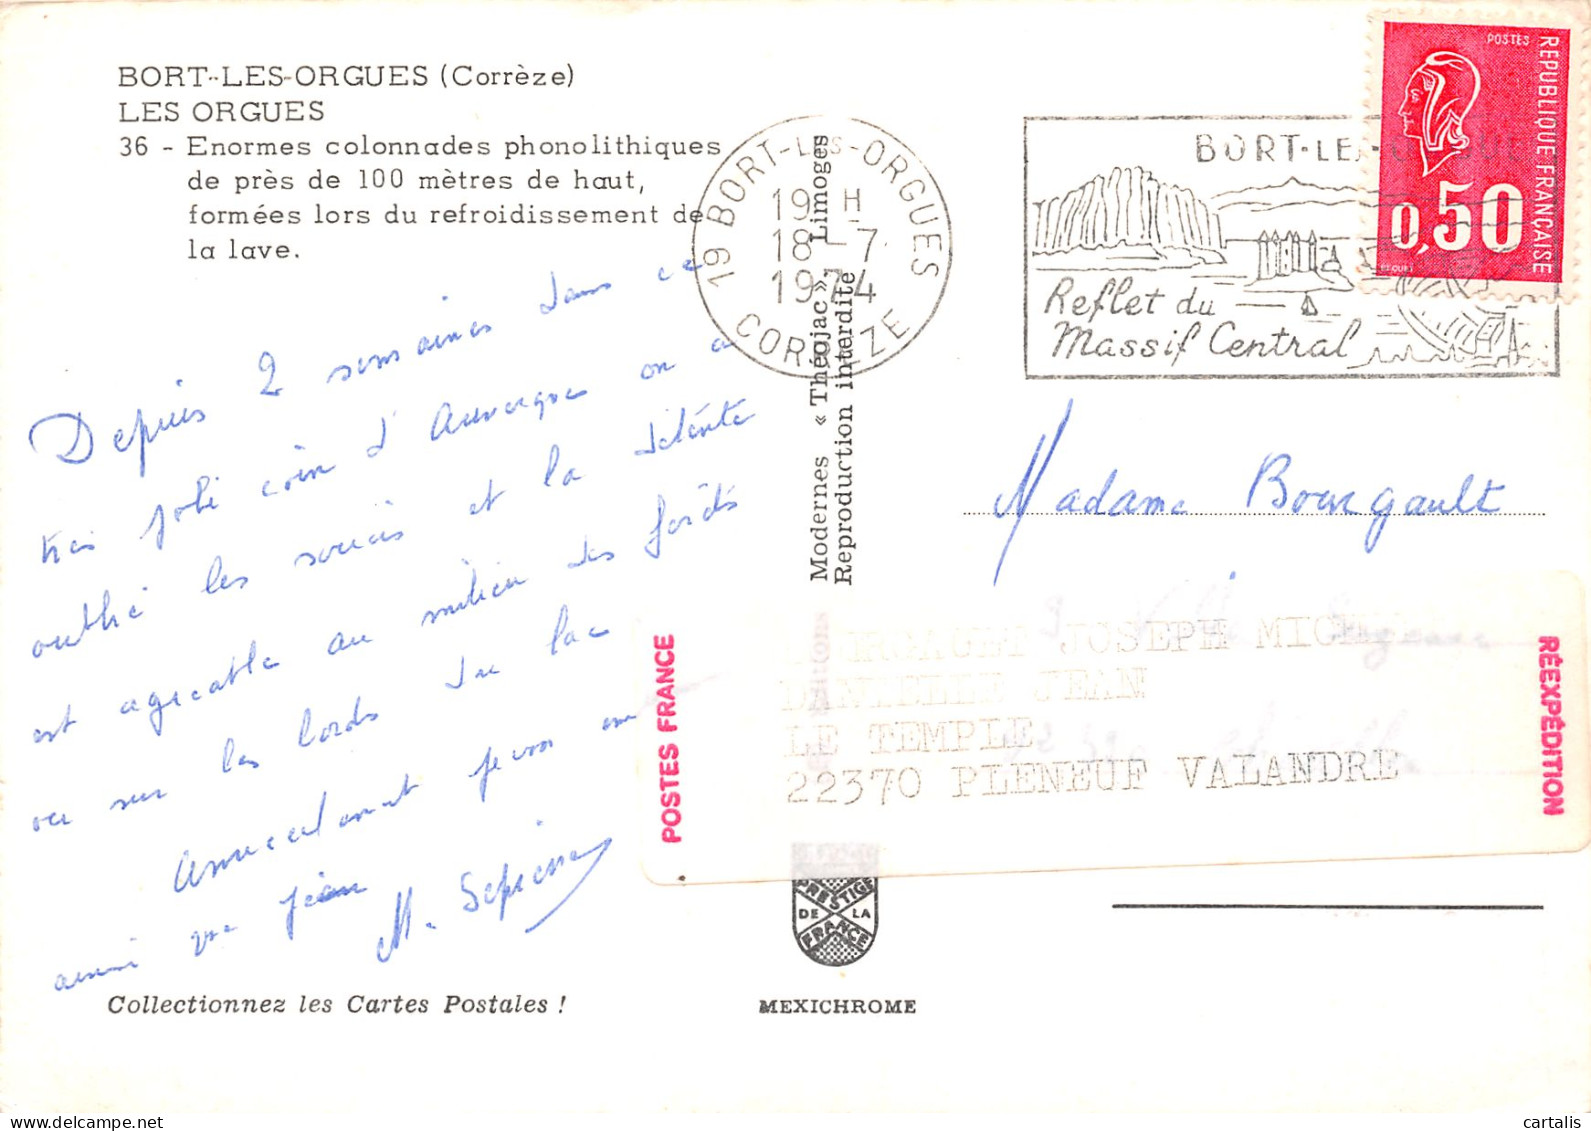 BORT-LES-ORGUES (Corrèze)
LES ORGUES
36 - Enormes colonnades phonolithiques
de près de 100 mètres de haut,
formées lors du refroidissement de
la lave.
Depuis 2 semaines dans ce
très joli coin d'Auvergne on a
oublié les soucis et la détente
est agréable au milieu des forêts
ou sur les bords du lac
Amicalement
ainsi que
M.
Collectionnez les Cartes Postales !
19 BORT-LES-ORGUES
19 H
18-7
1974
CORREZE
Modernes « Théojac » Limoges
Reproduction interdite
BORT-LES-
Reflet du
Massif Central
POSTES
REPUBLIQUE FRANÇAISE
0,50
Madame Bourgault
POSTES FRANCE
JOSEPH
DANIELLE JEAN
LE TEMPLE
22370 PLENEUF VALANDRE
RÉEXPÉDITION
PRESTIGE
DE LA
FRANCE
MEXICHROME
cartalis.com